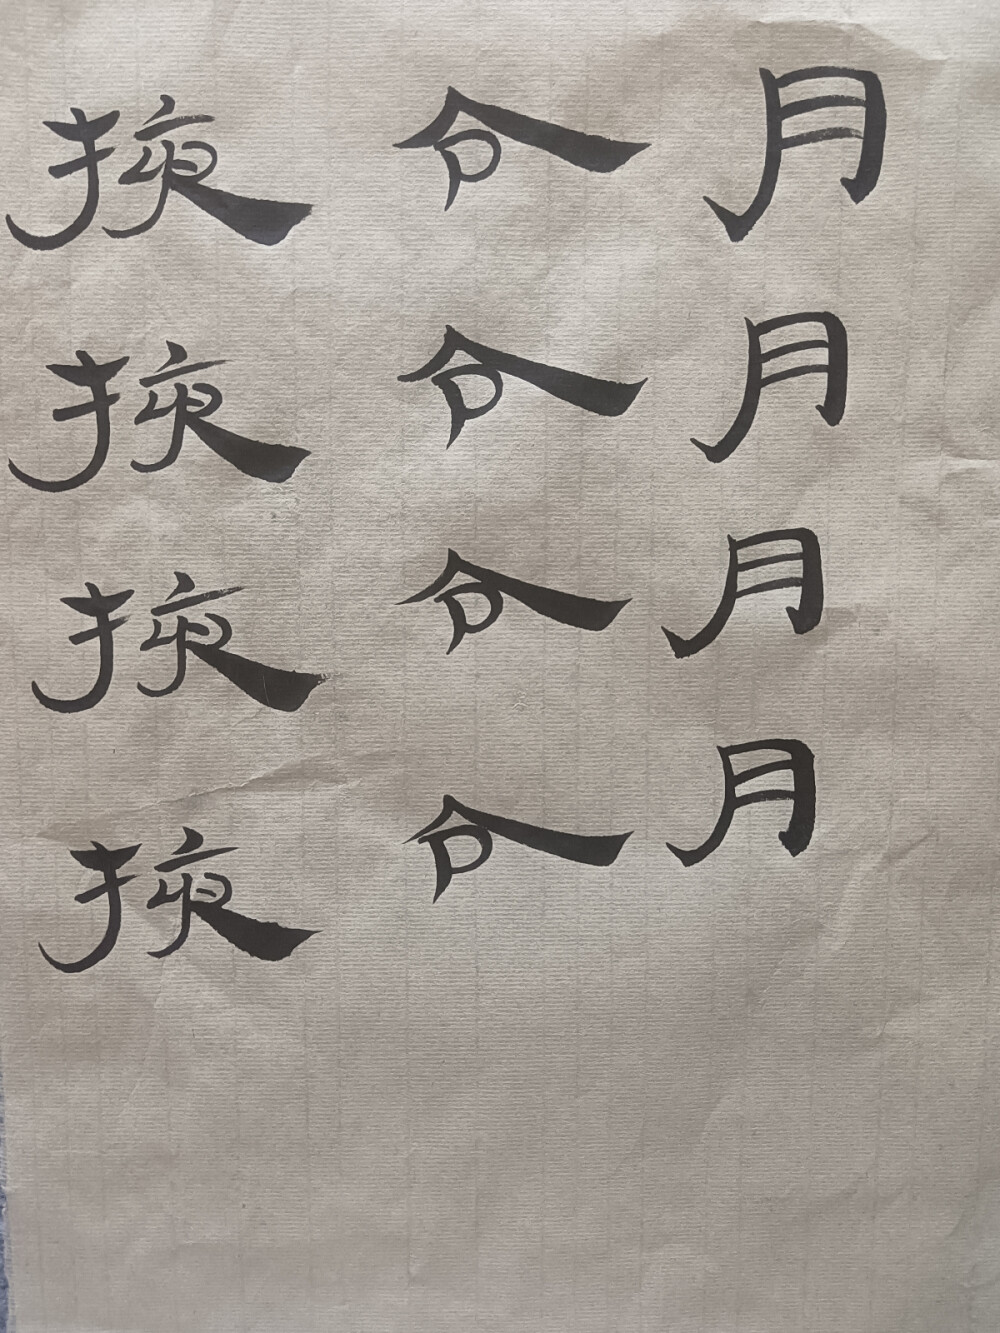 月月月月
令令令令
掖掖掖掖